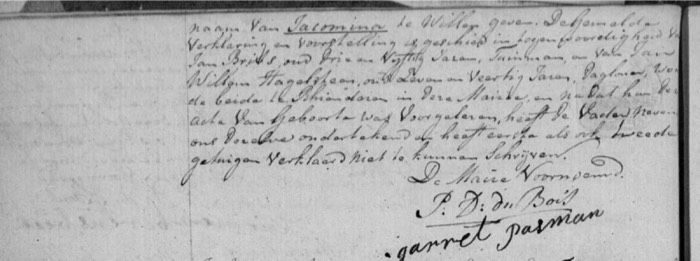 naam van Jacomina te Willen geven. De gemelde
Verklaring en voorstelling is geschied in tegenwoordigheid van
Jan Briels, oud Drie en Vijftig Jaren, Tuinman, en van Jan
Willem Hagelsteen, oud Zeven en Veertig Jaren, Daglooner, Wo
de beide te Rhienderen in deze Mairie, en na dat hun deze
acte van Geboorte was Voorgelezen, heeft de Vader nevens
ons Dezelve ondertekend en heeft eerste als ook tweede
getuigen Verklaard niet te kunnen Schrijven.
De Maire Voornoemd.
P. D: du Bois
garret pasman